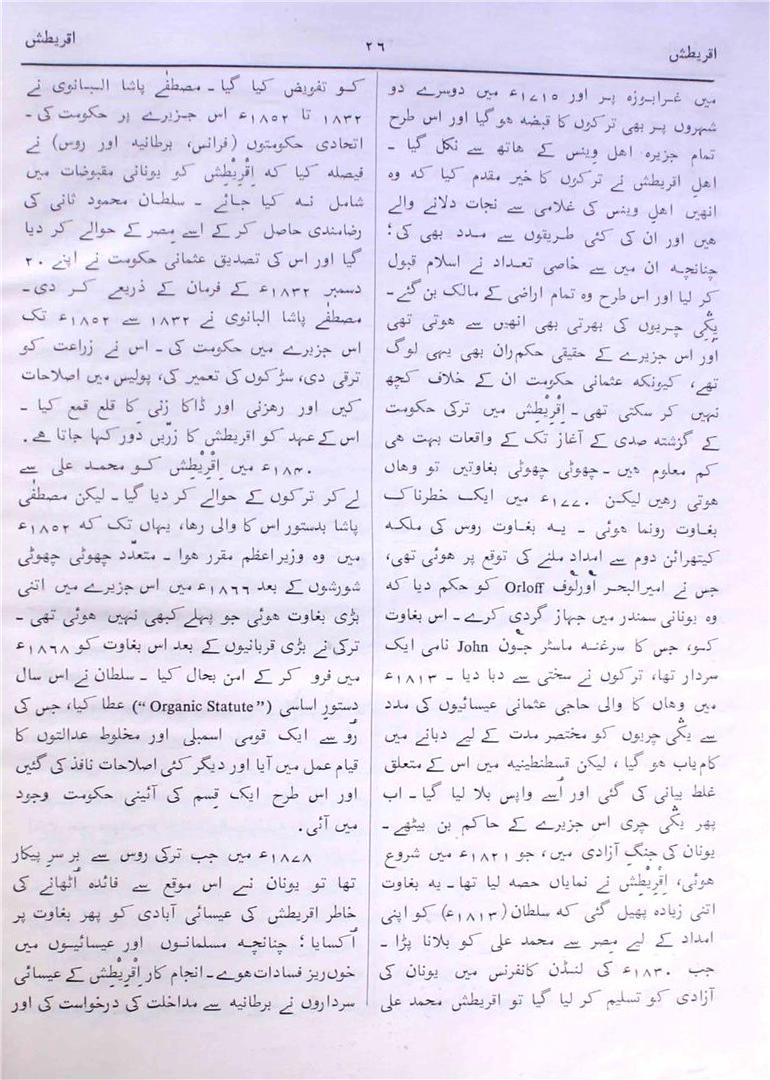 اقریطش
۲۶
اقریطش
میں غرابوزہ پر اور ۱۷۱۵ء میں دوسرے دو
شہروں پر بھی ترکوں کا قبضہ ہو گیا اور اس طرح
تمام جزیرہ اہل وینس کے ہاتھ سے نکل گیا ۔
اہلِ اقریطش نے ترکوں کا خیر مقدم کیا کہ وہ
انھیں اہلِ وینس کی غلامی سے نجات دلانے والے
ہیں اور ان کی کئی طریقوں سے مدد بھی کی؛
چنانچہ ان میں سے خاصی تعداد نے اسلام قبول
کر لیا اور اس طرح وہ تمام اراضی کے مالک بن گئے۔
یکی چریوں کی بھرتی بھی انھیں سے ہوتی تھی
اور اس جزیرے کے حقیقی حکمران بھی یہی لوگ
تھے، کیونکہ عثمانی حکومت ان کے خلاف کچھ
نہیں کر سکتی تھی۔ اِقْرِیْطِش میں ترکی حکومت
کے گزشتہ صدی کے آغاز تک کے واقعات بہت ہی
کم معلوم ہیں۔ چھوٹی چھوٹی بغاوتیں تو وہاں
ہوتی رہیں لیکن ۱۷۷۰ء میں ایک خطرناک
بغاوت رونما ہوئی ۔ یہ بغاوت روس کی ملکہ
کیتھرائن دوم سے امداد ملنے کی توقع پر ہوئی تھی،
جس نے امیرالبحر اورلوف Orloff کو حکم دیا کہ
وہ یونانی سمندر میں جہاز گردی کرے۔ اس بغاوت
کو، جس کا سرغنہ ماسٹر جون John نامی ایک
سردار تھا، ترکوں نے سختی سے دبا دیا ۔ ۱۸۱۳ء
میں وہاں کا والی حاجی عثمانی عیسائیوں کی مدد
سے یکی چریوں کو مختصر مدت کے لیے دبانے میں
کامیاب ہو گیا ، لیکن قسطنطینیہ میں اس کے متعلق
غلط بیانی کی گئی اور اُسے واپس بلا لیا گیا۔ اب
پھر یکی چری اس جزیرے کے حاکم بن بیٹھے ۔
یونان کی جنگِ آزادی میں، جو ۱۸۲۱ء میں شروع
ہوئی، اِقْرِیْطِش نے نمایاں حصہ لیا تھا۔ یہ بغاوت
اتنی زیادہ پھیل گئی کہ سلطان (۱۸۱۳ء) کو اپنی
امداد کے لیے مصر سے محمد علی کو بلانا پڑا ۔
جب ۱۸۳۰ء کی لنڈن کانفرنس میں یونان کی
آزادی کو تسلیم کر لیا گیا تو اقریطش محمد علی
کو تفویض کیا گیا۔ مصطفٰے پاشا البانوی نے
۱۸۳۲ تا ۱۸۵۲ء اس جزیرے پر حکومت کی۔
اتحادی حکومتوں (فرانس، برطانیہ اور روس) نے
فیصلہ کیا کہ اِقْرِیْطِش کو یونانی مقبوضات میں
شامل نہ کیا جائے ۔ سلطان محمود ثانی کی
رضامندی حاصل کر کے اسے مِصر کے حوالے کر دیا
گیا اور اس کی تصدیق عثمانی حکومت نے اپنے ۲۰
دسمبر ۱۸۳۲ء کے فرمان کے ذریعے کر دی۔
مصطفٰے پاشا البانوی نے ۱۸۳۲ سے ۱۸۵۲ء تک
اس جزیرے میں حکومت کی۔ اس نے زراعت کو
ترقی دی، سڑکوں کی تعمیر کی، پولیس میں اصلاحات
کیں اور رہزنی اور ڈاکا زنی کا قلع قمع کیا ۔
اس کے عہد کو اقریطش کا زرّیں دَور کہا جاتا ہے.
۱۸۴۰ء میں اِقْرِیْطِش کو محمد علی سے
لے کر ترکوں کے حوالے کر دیا گیا۔ لیکن مصطفٰی
پاشا بدستور اس کا والی رہا، یہاں تک کہ ۱۸۵۲ء
میں وہ وزیراعظم مقرر ہوا ۔ متعدّد چھوٹی چھوٹی
شورشوں کے بعد ۱۸۶۶ء میں اس جزیرے میں اتنی
بڑی بغاوت ہوئی جو پہلے کبھی نہیں ہوئی تھی ۔
ترکی نے بڑی قربانیوں کے بعد اس بغاوت کو ۱۸۶۸ء
میں فرو کر کے امن بحال کیا ۔ سلطان نے اس سال
دستورِ اساسی (“Organic Statute”) عطا کیا، جس کی
رُو سے ایک قومی اسمبلی اور مخلوط عدالتوں کا
قیام عمل میں آیا اور دیگر کئی اصلاحات نافذ کی گئیں
اور اس طرح ایک قِسم کی آئینی حکومت وجود
میں آئی.
۱۸۷۸ء میں جب ترکی روس سے بر سرِ پیکار
تھا تو یونان نے اس موقع سے فائدہ اُٹھانے کی
خاطر اقریطش کی عیسائی آبادی کو پھر بغاوت پر
اُکسایا؛ چنانچہ مسلمانوں اور عیسائیوں میں
خوں ریز فسادات ہوے۔ انجام کار اِقْرِیْطِش کے عیسائی
سرداروں نے برطانیہ سے مداخلت کی درخواست کی اور